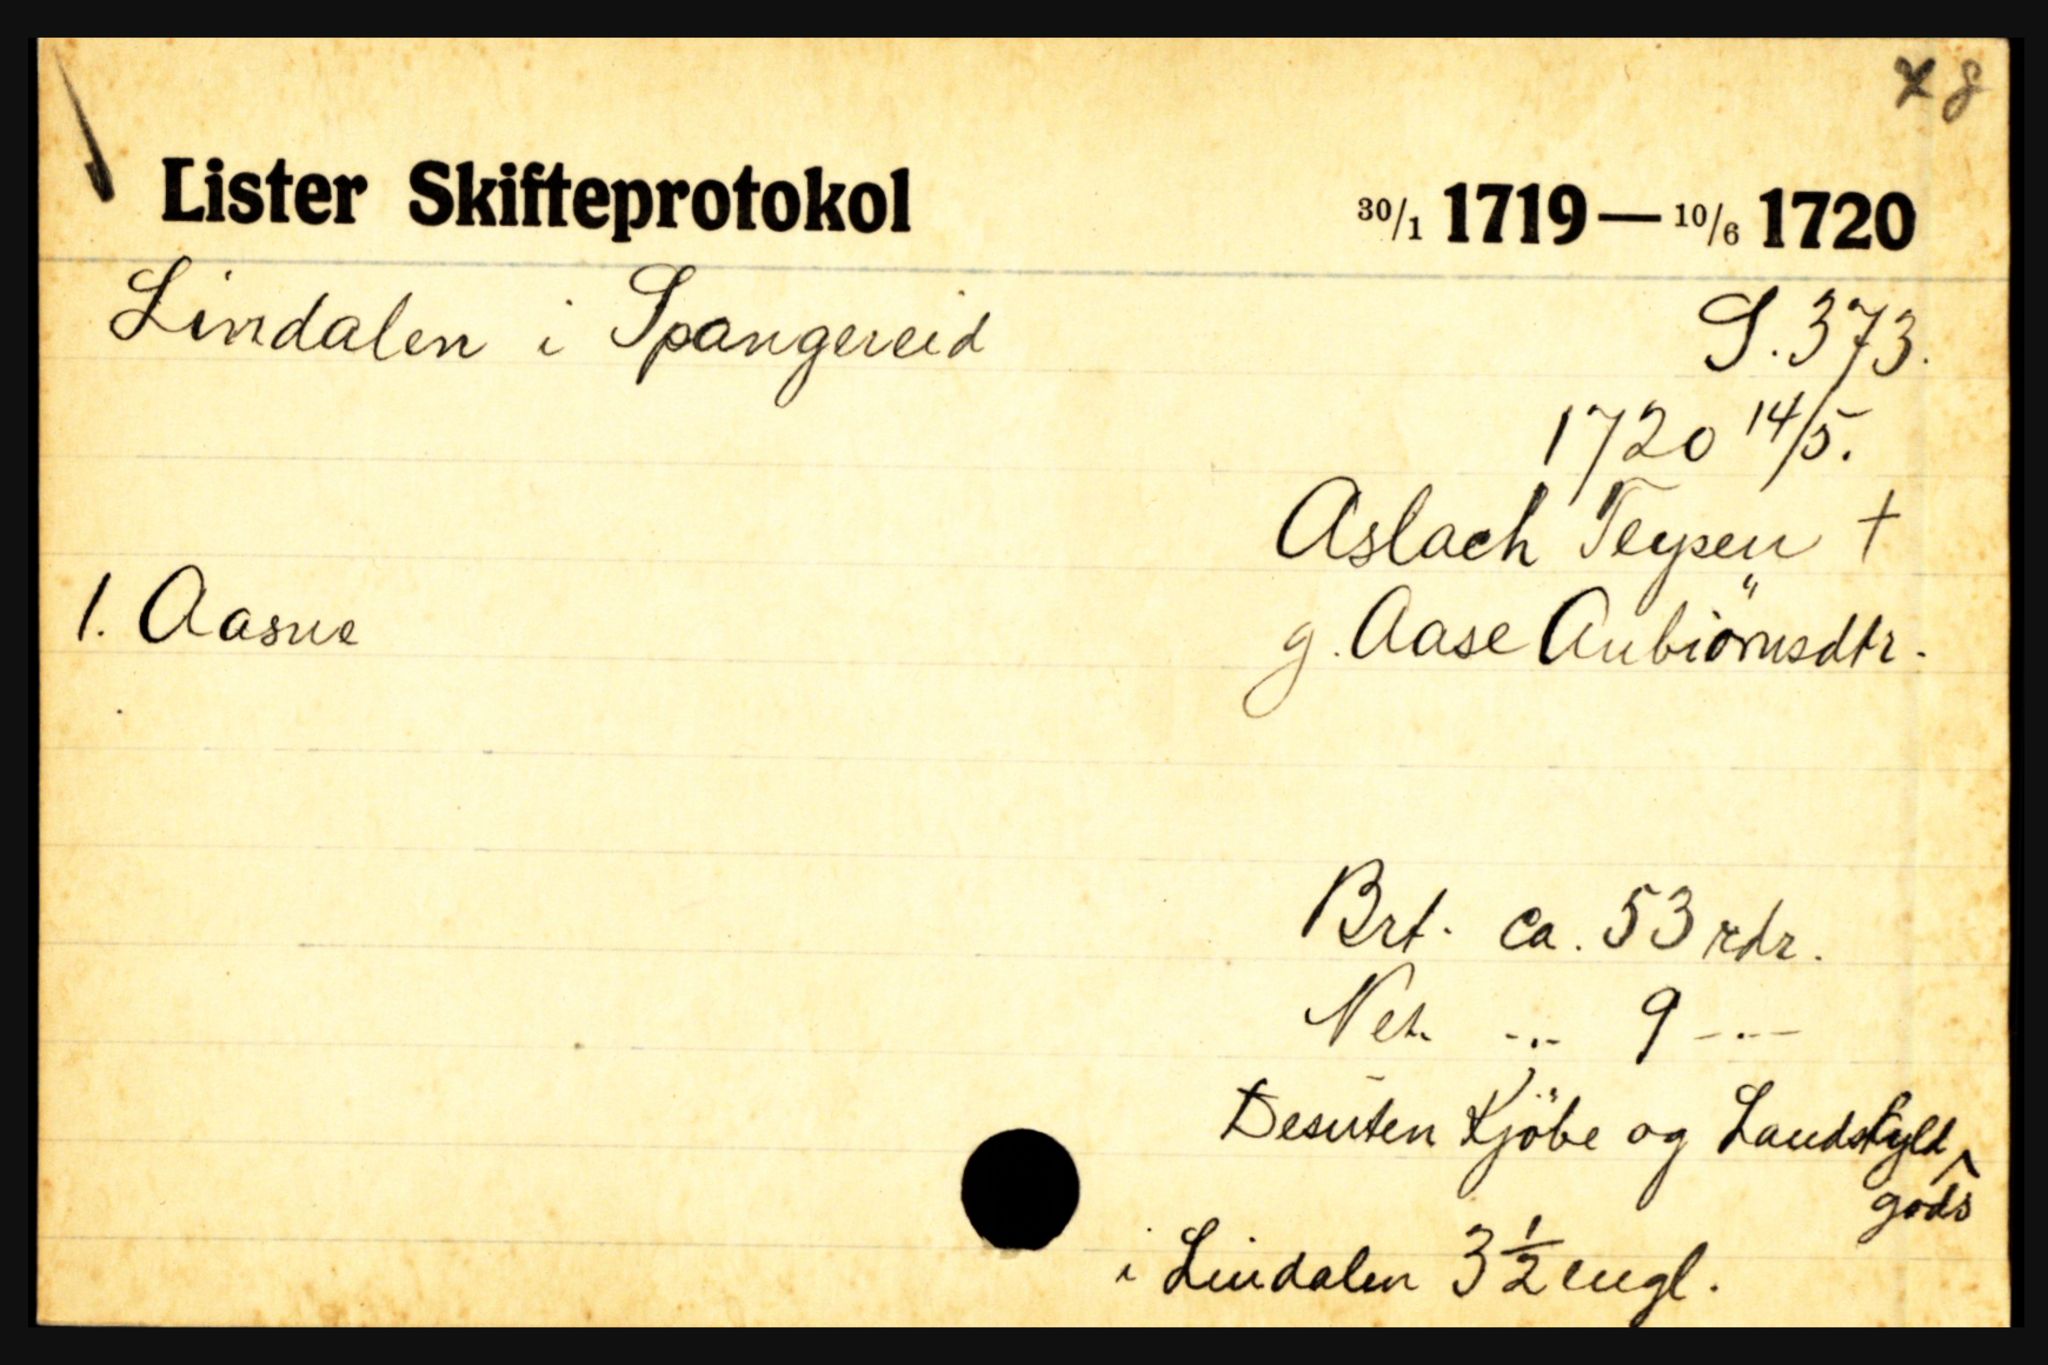 x 8
Lister Skifteprotokol 30/1 1719 — 10/6 1720
Lindalen i Spangereid S. 373.
1720 14/5.
Aslach Teysen †
1. Aasne g. Aase Anbiörnsdtr.
Brt. ca. 53 rdr.
Net. -„- 9 -„-
Desuten Kjöbe og Landskyld
gods
i Lindalen 3 1/2 engl.